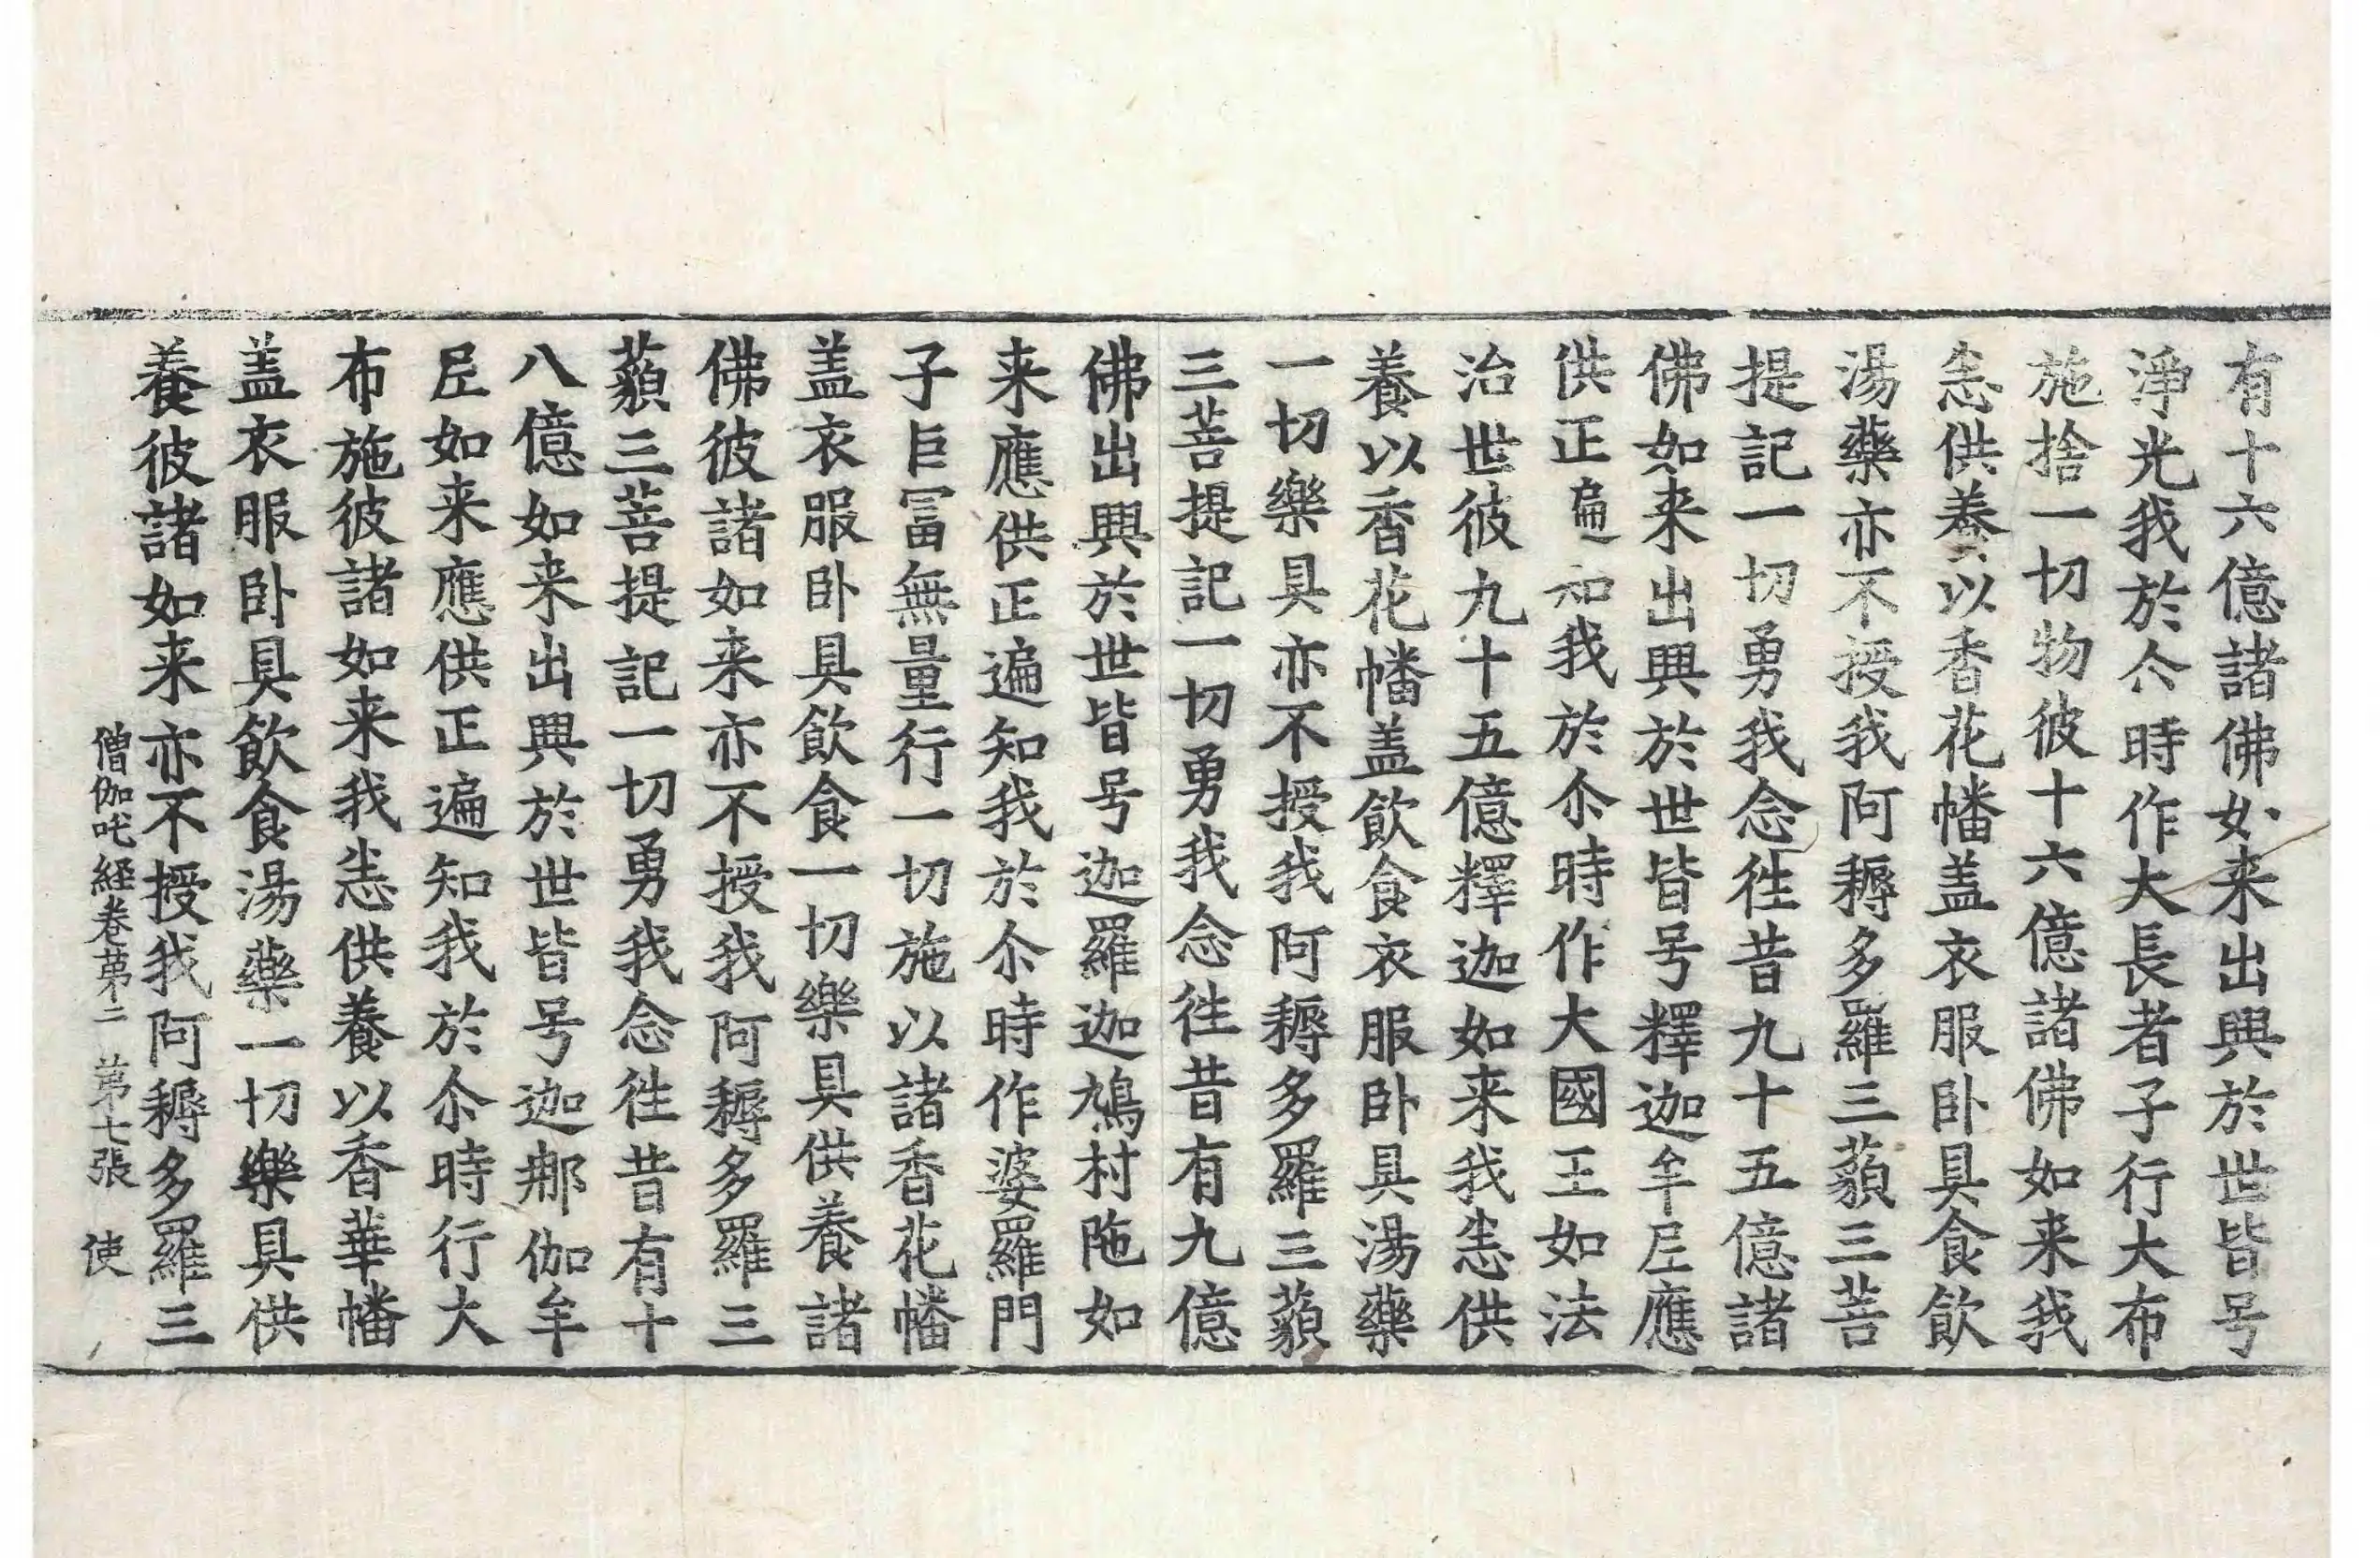 有十六億諸佛如来出興於世皆号
淨光我於尒時作大長者子行大布
施捨一切物彼十六億諸佛如来我
恙供養以香花幡盖衣服卧具食飲
湯藥亦不授我阿耨多羅三藐三菩
提記一切勇我念徃昔九十五億諸
佛如来出興於世皆号釋迦牟𡰱應
供正遍知我於尒時作大國王如法
治世彼九十五億釋迦如来我恙供
養以香花幡盖飲食衣服卧具湯藥
一切樂具亦不授我阿耨多羅三藐
三菩提記一切勇我念徃昔有九億
佛出興於世皆号迦羅迦鳩村陁如
来應供正遍知我於尒時作婆羅門
子巨冨無量行一切施以諸香花幡
盖衣服卧具飲食一切樂具供養諸
佛彼諸如来亦不授我阿耨多羅三
藐三菩提記一切勇我念徃昔有十
八億如来出興於世皆号迦那伽牟
𡰱如来應供正遍知我於尒時行大
布施彼諸如来我恙供養以香華幡
盖衣服卧具飲食湯藥一切樂具供
養彼諸如来亦不授我阿耨多羅三
僧伽吒経卷第二 第七張 使